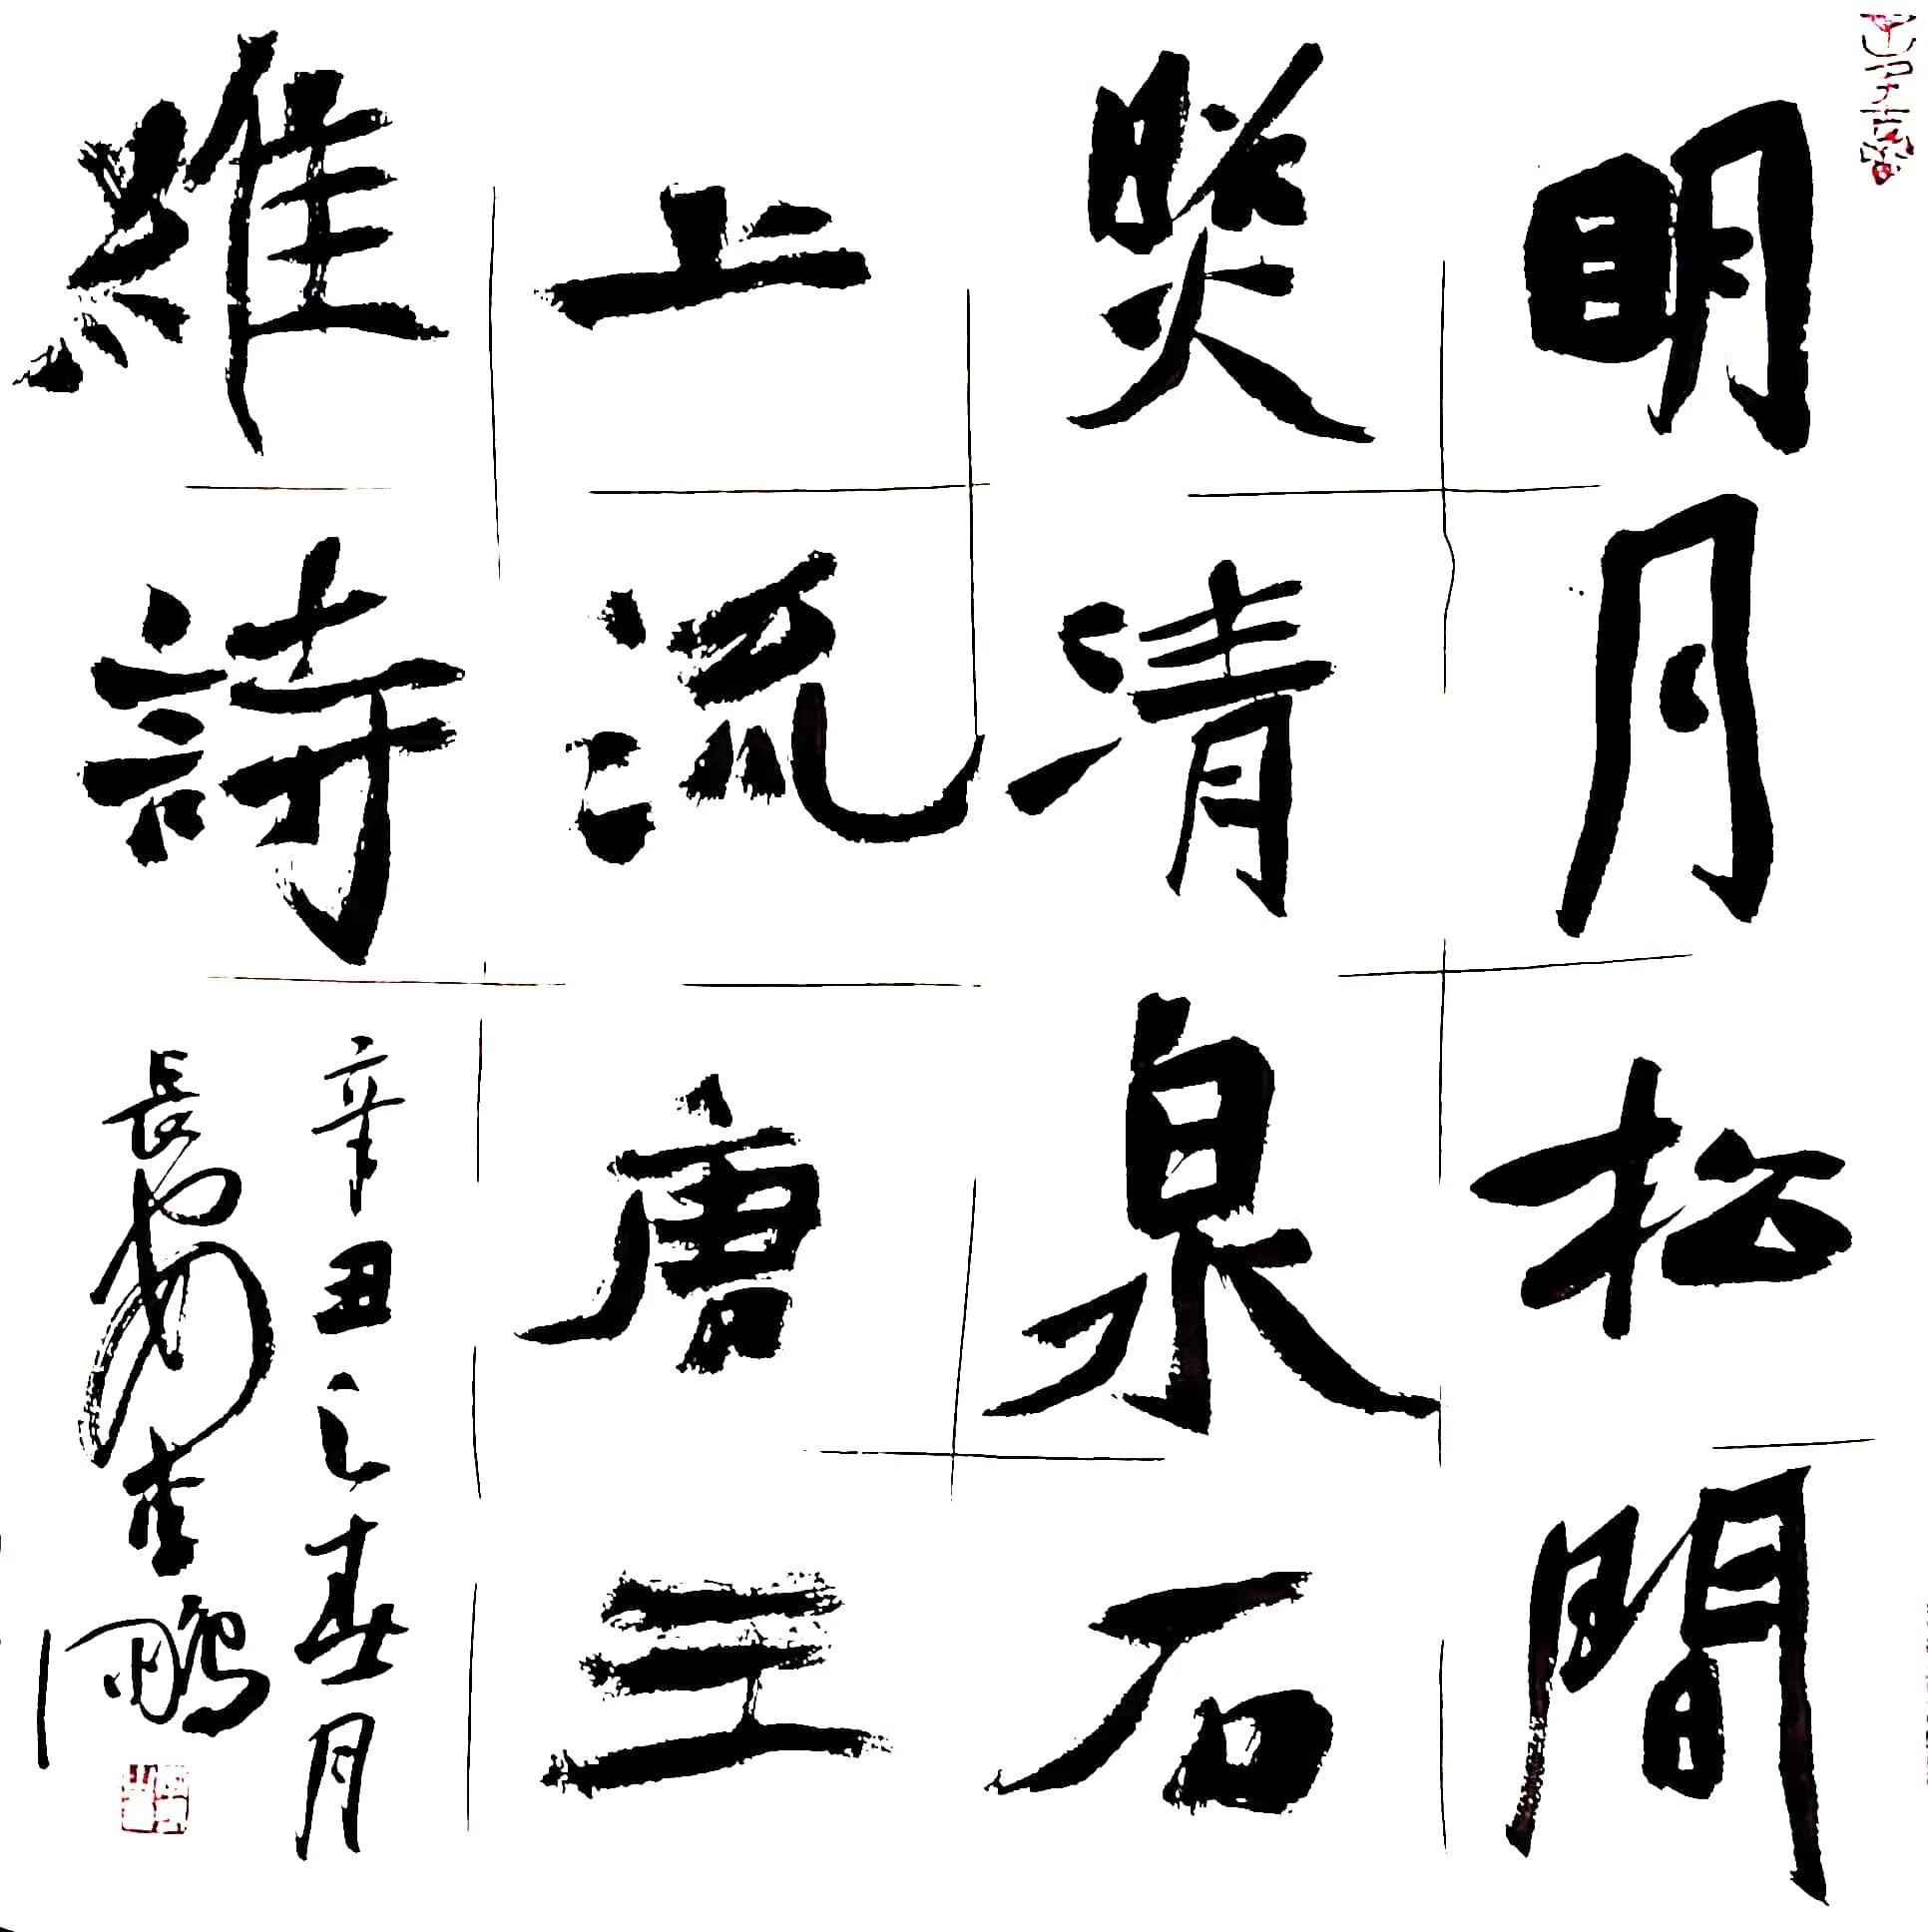 明月松間
照清泉石
上流唐王
維詩
辛丑之春月
長鵬